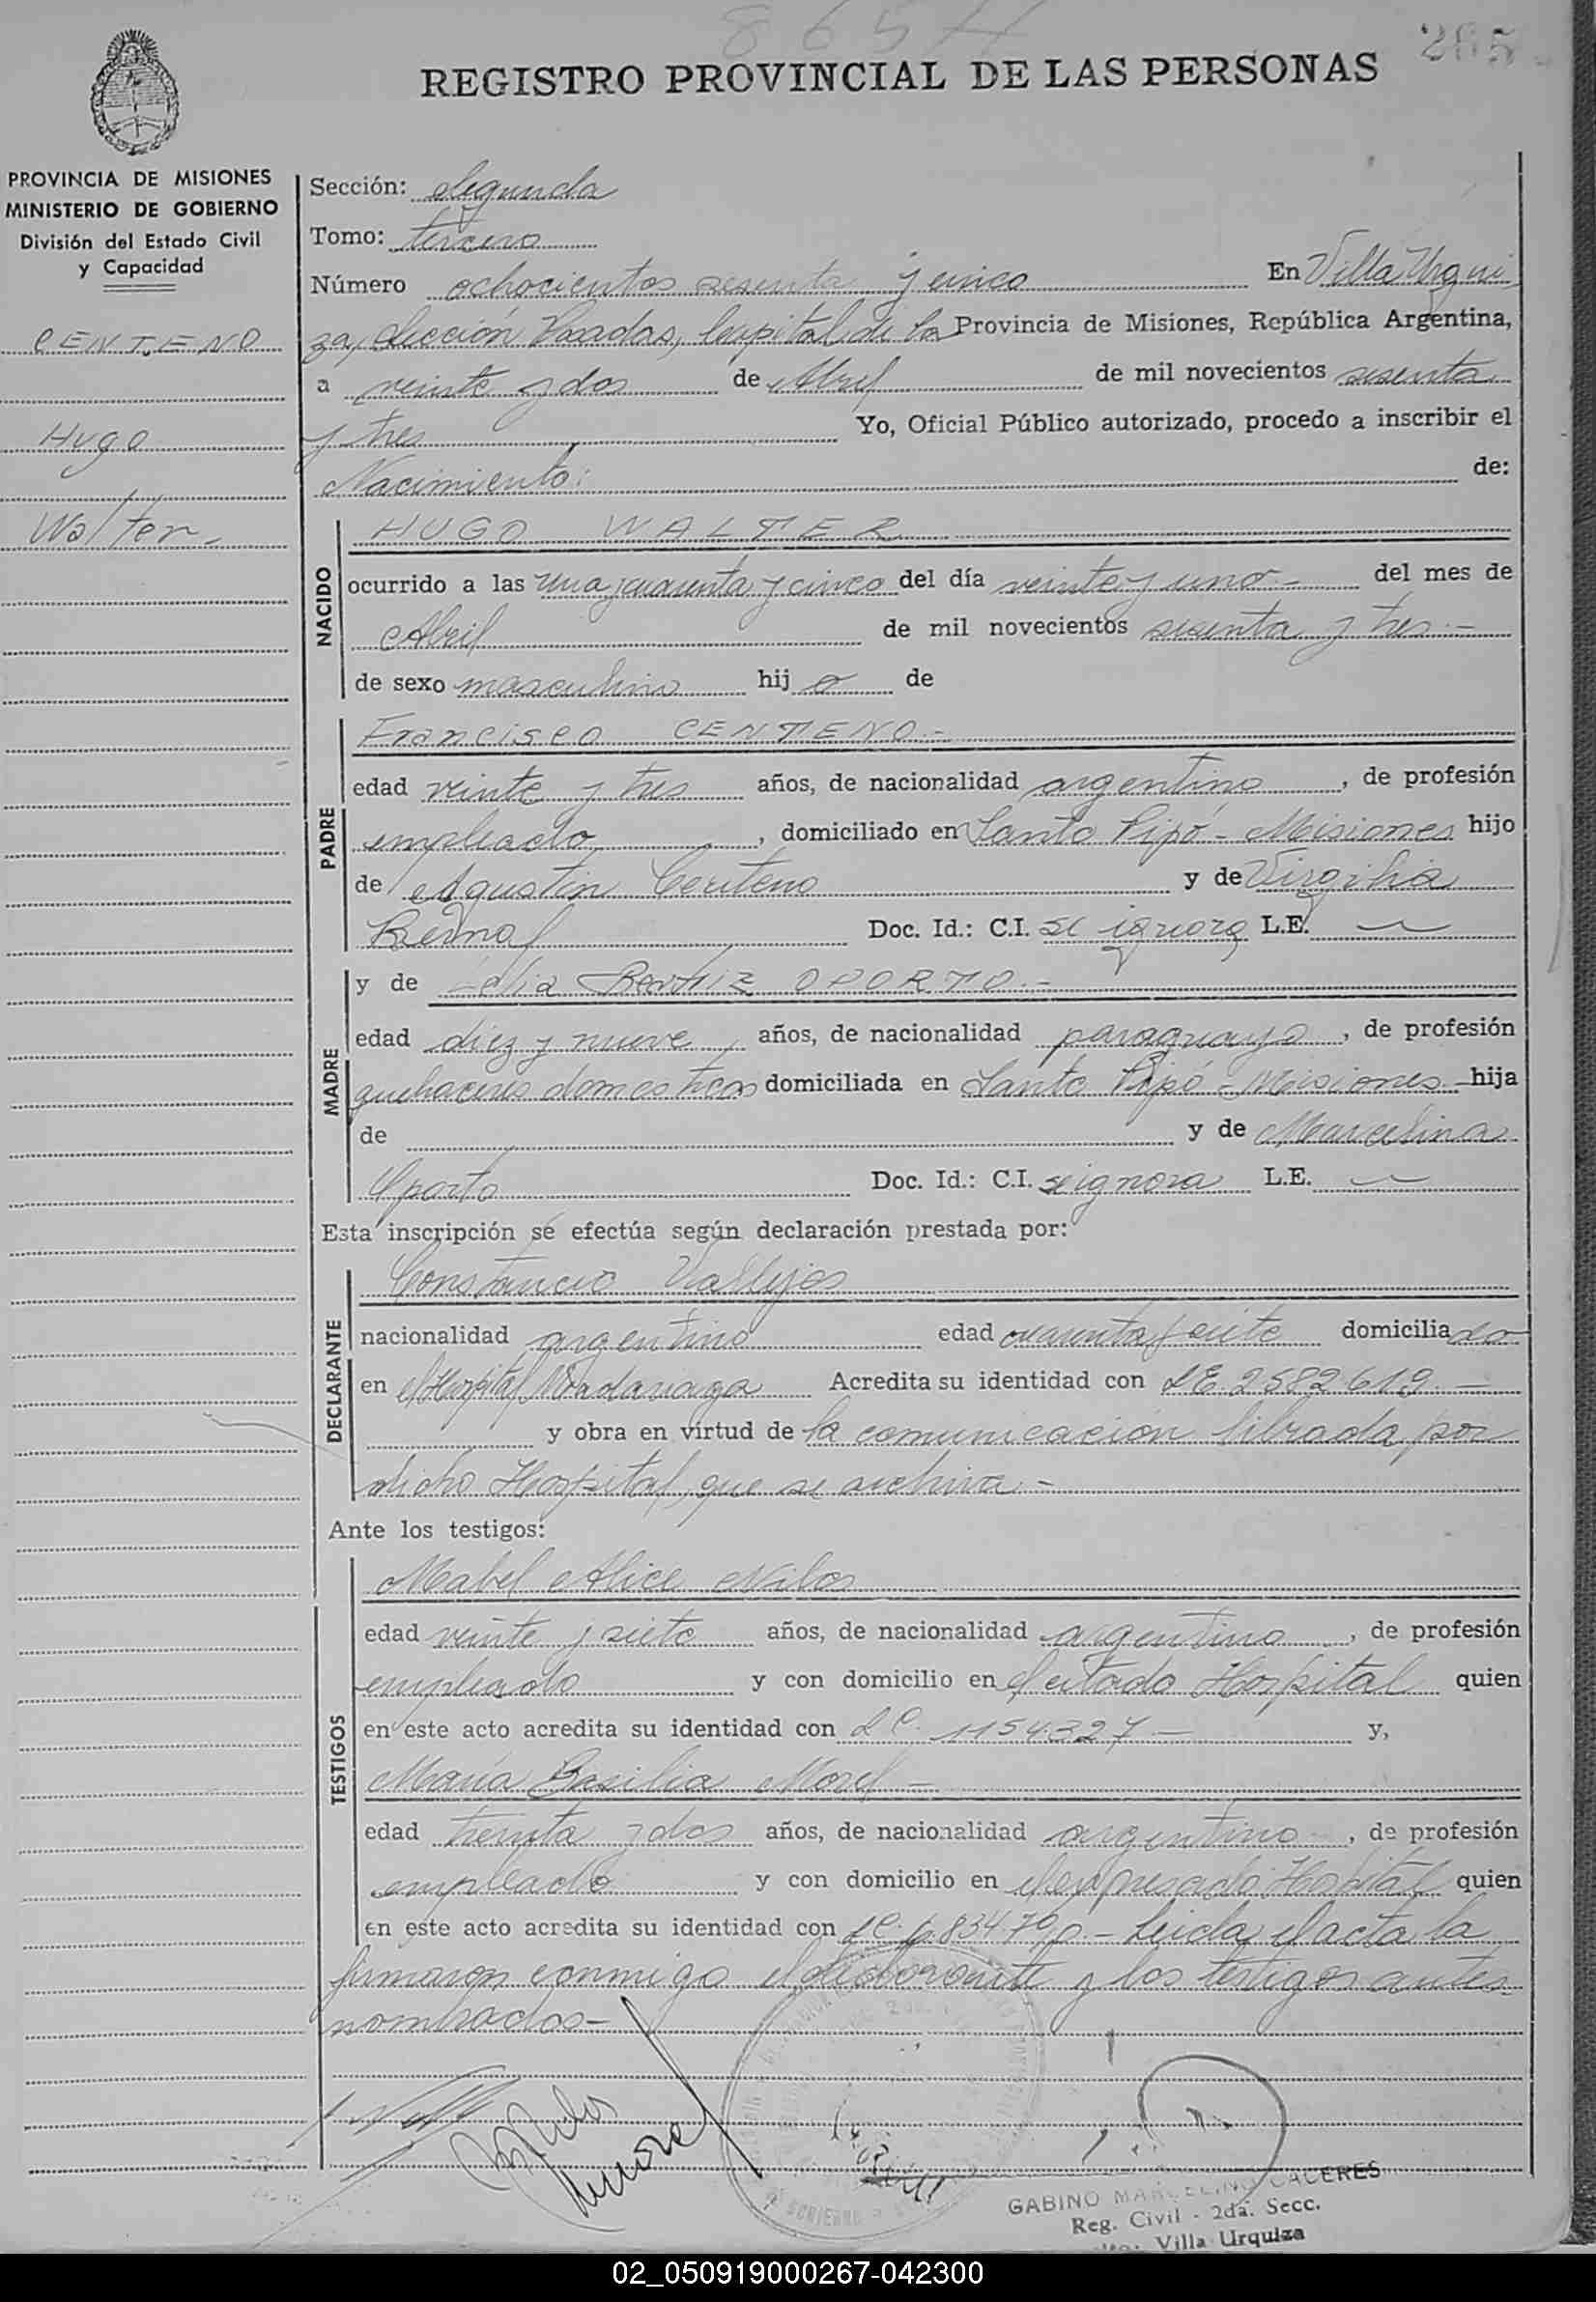 865
265
REGISTRO PROVINCIAL DE LAS PERSONAS
PROVINCIA DE MISIONES
MINISTERIO DE GOBIERNO
División del Estado Civil
y Capacidad
CENTENO
Hugo
Walter -
Sección: Segunda
Tomo: tercero
Número ochocientos sesenta y cinco En Villa Urqui
za, Sección Posadas, Capital de la Provincia de Misiones, República Argentina,
a veinte y dos de Abril de mil novecientos sesenta
y tres Yo, Oficial Público autorizado, procedo a inscribir el
Nacimiento: de:
NACIDO
HUGO WALTER
ocurrido a las una y cuarenta y cinco del día veinte y uno - del mes de
Abril de mil novecientos sesenta y tres -
de sexo masculino hij o de
PADRE
Francisco CENTENO -
edad veinte y tres años, de nacionalidad argentino, de profesión
empleado, domiciliado en Santo Pipó - Misiones hijo
de Agustin Centeno y de Virginia
Bernal Doc. Id.: C.I. se ignora L.E.
MADRE
y de Beatriz OPORTO -
edad diez y nueve años, de nacionalidad paraguaya, de profesión
quehaceres domesticos domiciliada en Santo Pipó - Misiones - hija
de y de Marcelina
Oporto Doc. Id.: C.I. se ignora L.E.
Esta inscripción se efectúa según declaración prestada por:
DECLARANTE
Constancio Vallejos
nacionalidad argentino edad cuarenta y siete domicilia do
en el Hospital Madariaga Acredita su identidad con LE. 2582619 -
y obra en virtud de la comunicación librada por
dicho Hospital, que se archiva. -
Ante los testigos:
TESTIGOS
Mabel Alice
edad veinte y siete años, de nacionalidad argentino, de profesión
empleado y con domicilio en el citado Hospital quien
en este acto acredita su identidad con LC. 1154.327 - y,
María Basilia Morel -
edad treinta y dos años, de nacionalidad argentino, de profesión
empleado y con domicilio en el expresado Hospital quien
en este acto acredita su identidad con LC. - Leida el acta la
firmaron conmigo el declarante y los testigos antes
nombrados -
GABINO MARCELINO CACERES
Reg. Civil - 2da. Secc.
Villa Urquiza
02_050919000267-042300